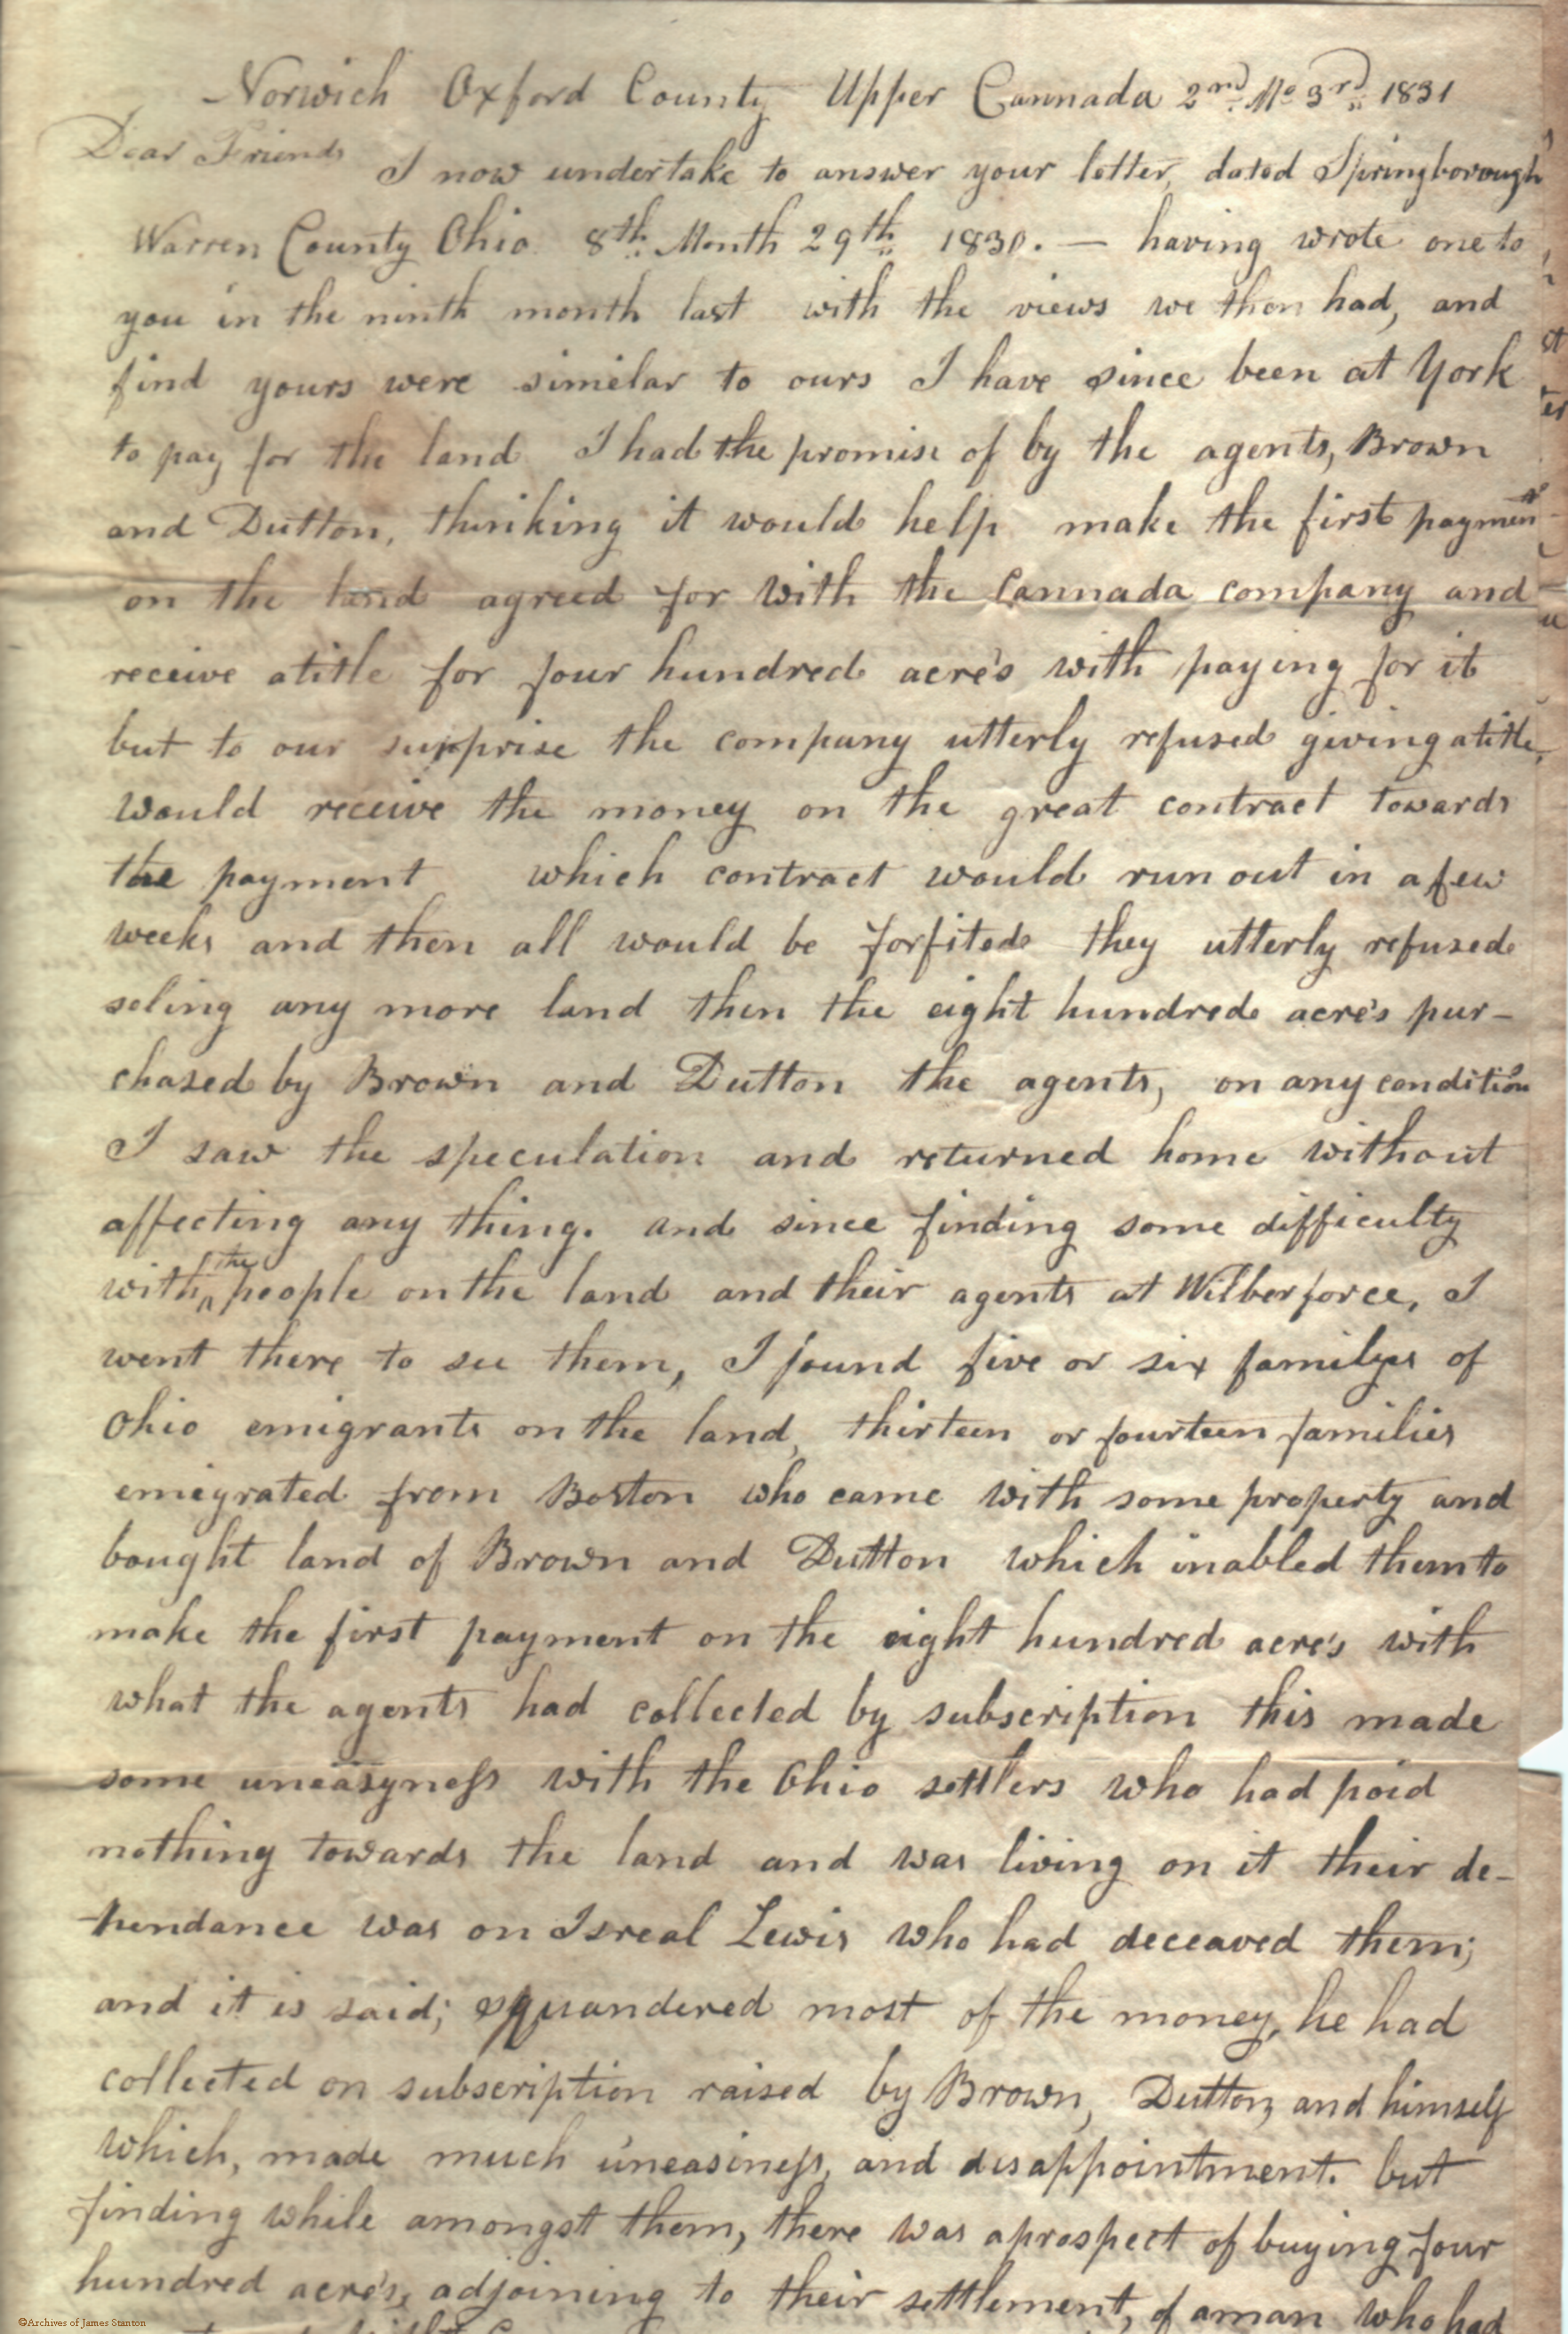 Norwich Oxford County Upper Cannada 2nd Mo 3rd 1831
Dear Friends
I now undertake to answer your letter, dated Springborough
Warren County Ohio 8th Month 29th 1830. — having wrote one to
you in the ninth month last with the views we then had, and
find yours were similar to ours I have since been at York
to pay for the land I had the promise of by the agents, Brown
and Dutton, thinking it would help make the first payment
on the land agreed for with the Cannada company and
receive a title for four hundred acre's with paying for it
but to our surprise the company utterly refused giving a title,
would receive the money on the great contract towards
the payment which contract would run out in a few
weeks and then all would be forfited they utterly refused
seling any more land then the eight hundred acre's pur-
chased by Brown and Dutton the agents, on any condition
I saw the speculation and returned home without
affecting any thing. and since finding some difficulty
with the people on the land and their agents at Wilberforce, I
went there to see them, I found five or six familyes of
Ohio emigrants on the land, thirteen or fourteen families
emigrated from Boston who came with some property and
bought land of Brown and Dutton which inabled them to
make the first payment on the eight hundred acre's with
what the agents had collected by subscription this made
some uneasyness with the Ohio settlers who had paid
nothing towards the land and was living on it their de-
pendance was on Isreal Lewis who had deceaved them;
and it is said; squandered most of the money, he had
collected on subscription raised by Brown, Dutton, and himself
which, made much uneasiness, and disappointment. but
finding while amongst them, there was a prospect of buying four
hundred acre's, adjoining to their settlement, of a man who had
©Archives of James Stanton